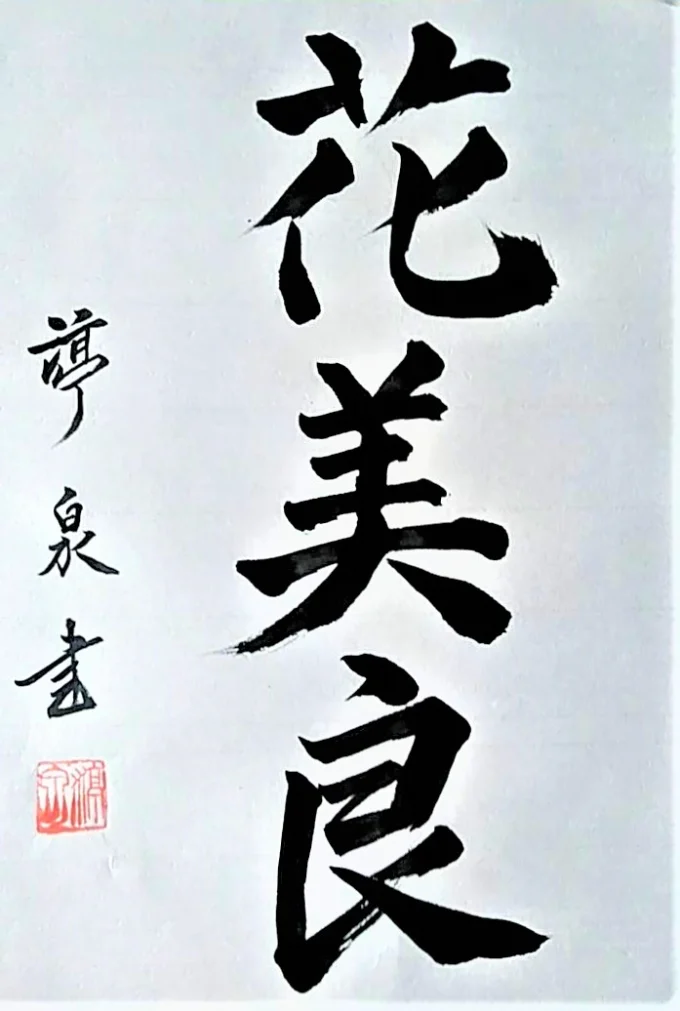 花美良
泉書